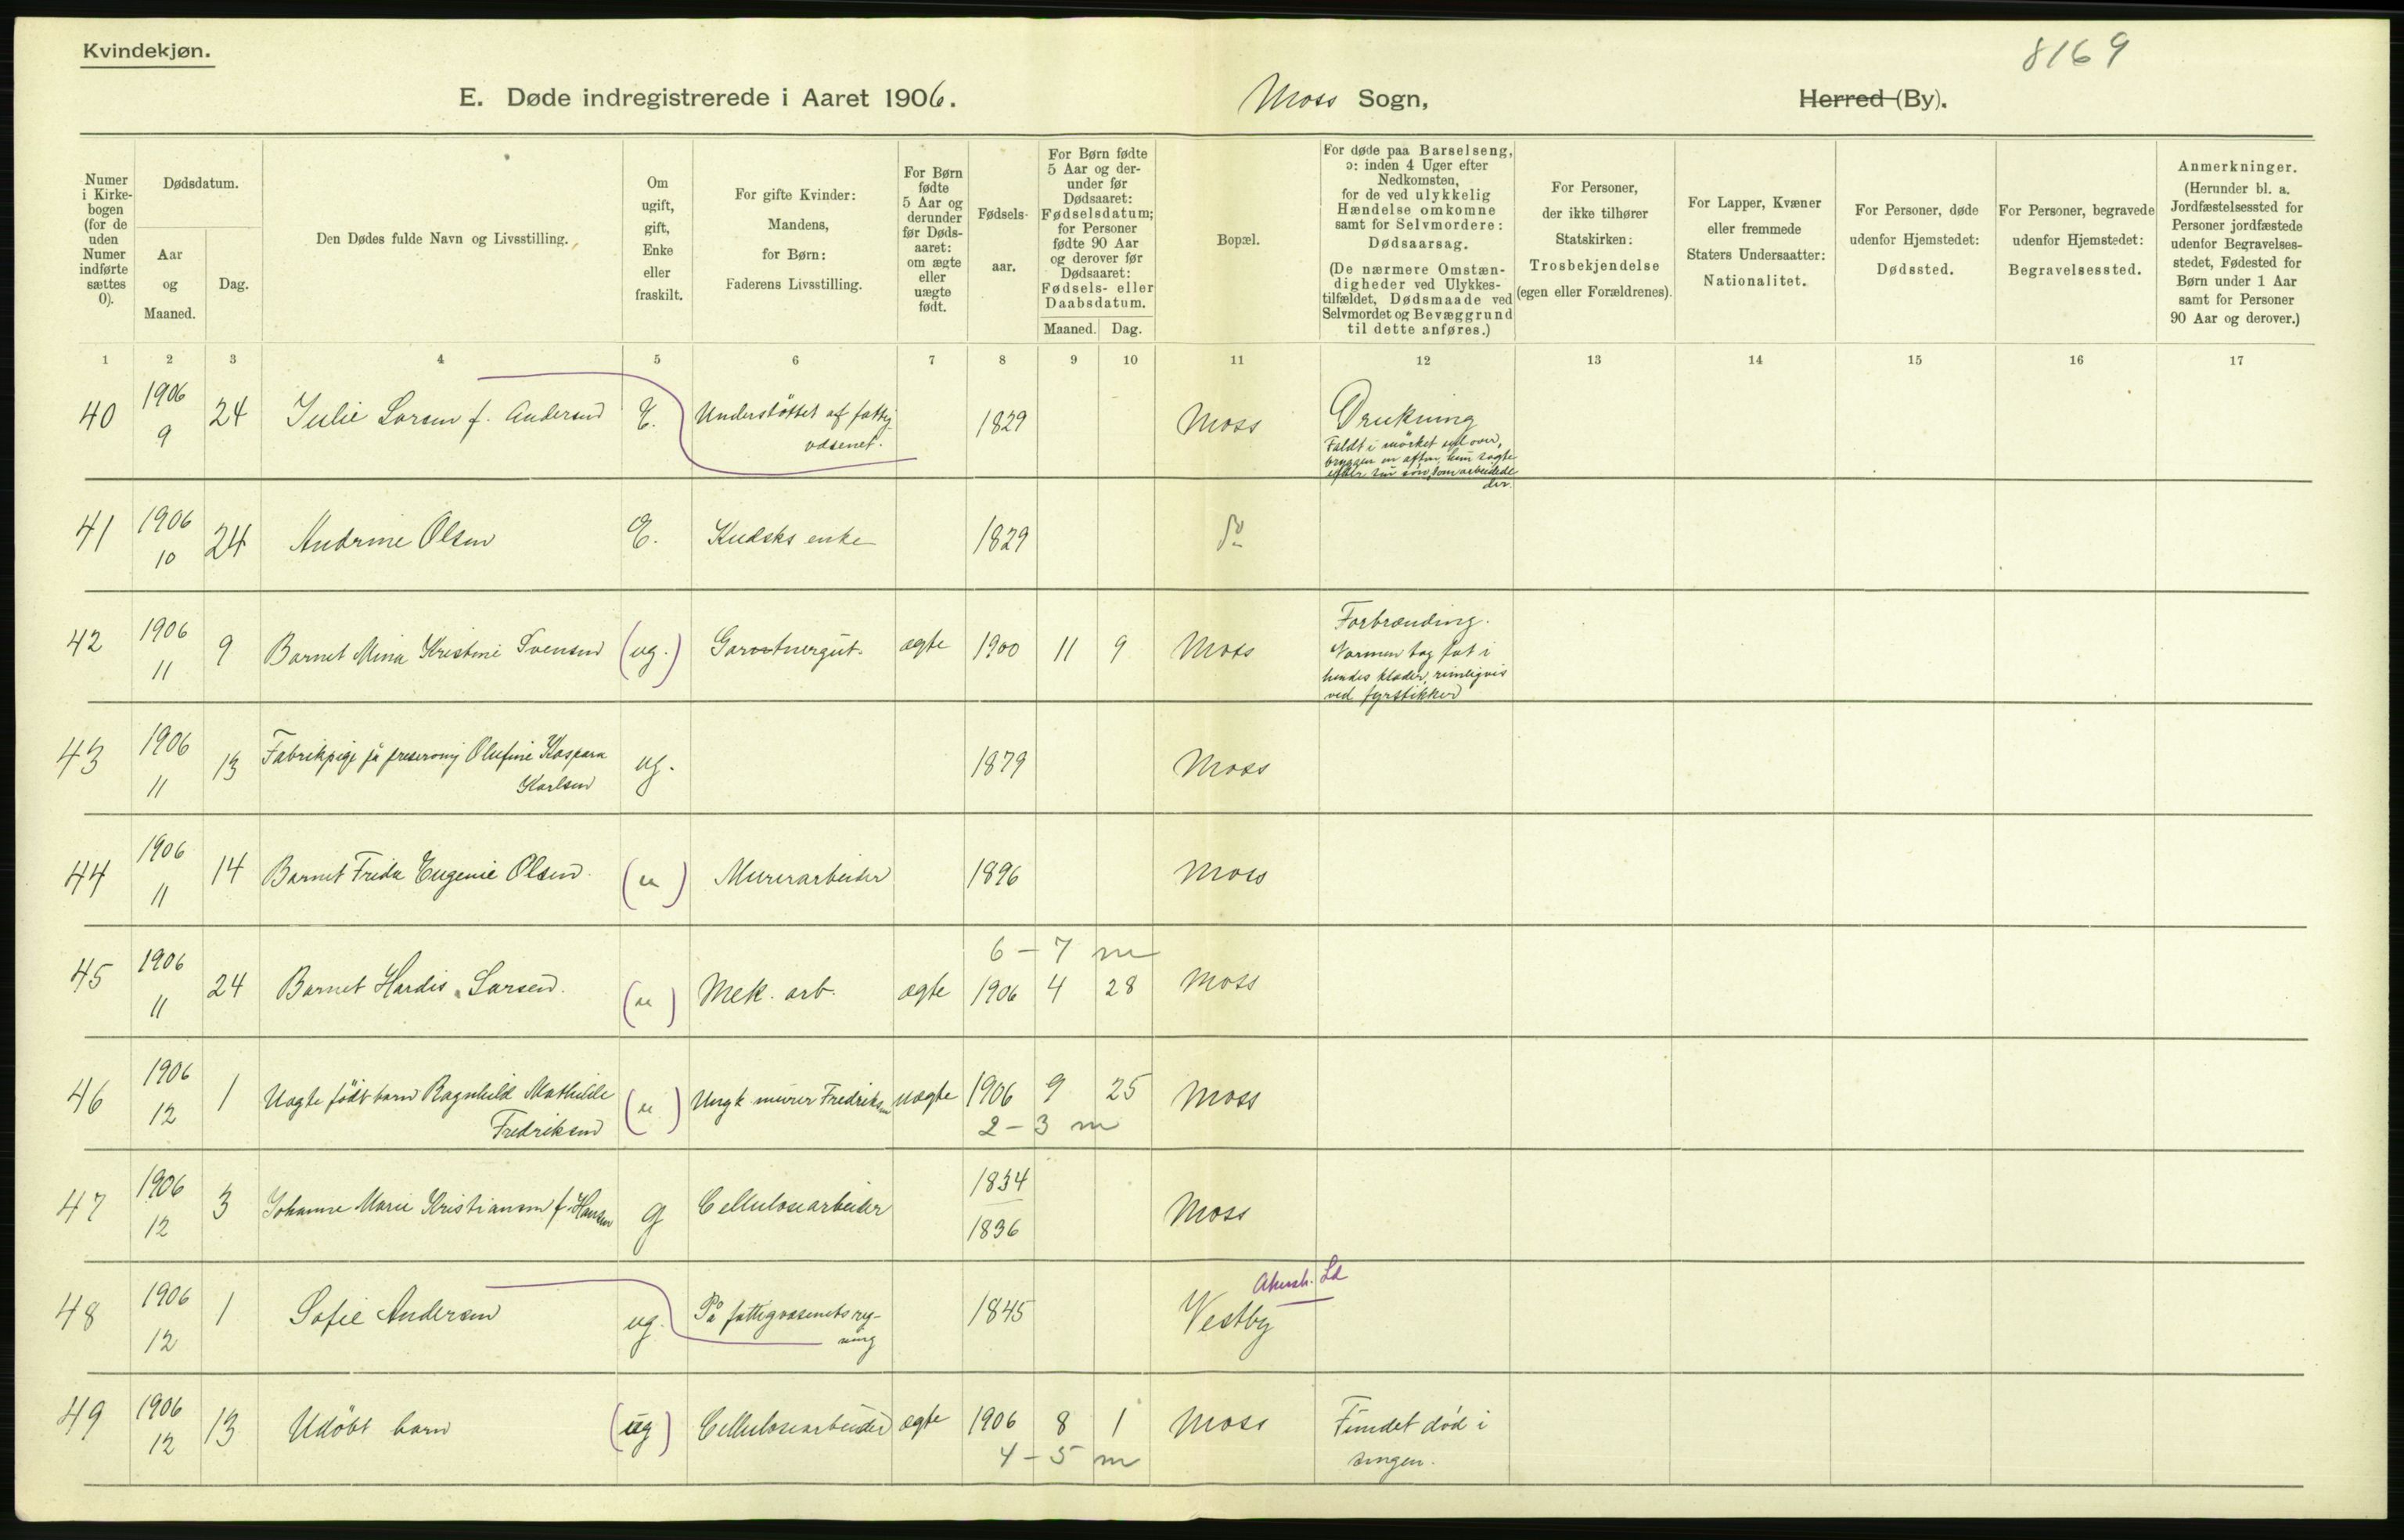 Kvindekjøn.
8169
E. Døde indregistrerede i Aaret 1906.
Moss Sogn,
Herred (By).
Numer i Kirkebogen (for de uden Numer indførte sættes 0).
Dødsdatum.
Aar og Maaned.
Dag.
Den Dødes fulde Navn og Livsstilling.
Om ugift, gift, Enke eller fraskilt.
For gifte Kvinder: Mandens, for Børn: Faderens Livsstilling.
For Børn fødte 5 Aar og derunder før Dødsaaret: om ægte eller uægte født.
Fødselsaar.
For Børn fødte 5 Aar og derunder før Dødsaaret: Fødselsdatum; for Personer fødte 90 Aar og derover før Dødsaaret: Fødsels- eller Daabsdatum.
Maaned. Dag.
Bopæl.
For døde paa Barselseng, ɔ: inden 4 Uger efter Nedkomsten, for de ved ulykkelig Hændelse omkomne samt for Selvmordere: Dødsaarsag.
(De nærmere Omstændigheder ved Ulykkestilfældet, Dødsmaade ved Selvmordet og Bevæggrund til dette anføres.)
For Personer, der ikke tilhører Statskirken: Trosbekjendelse (egen eller Forældrenes).
For Lapper, Kvæner eller fremmede Staters Undersaatter: Nationalitet.
For Personer, døde udenfor Hjemstedet: Dødssted.
For Personer, begravede udenfor Hjemstedet: Begravelsessted.
Anmerkninger. (Herunder bl. a. Jordfæstelsessted for Personer jordfæstede udenfor Begravelsesstedet, Fødested for Børn under 1 Aar samt for Personer 90 Aar og derover.)
1 2 3 4 5 6 7 8 9 10 11 12 13 14 15 16 17
40 1906 9 24 Julie Larsen f. Andersen E. Understöttet af fattigvæsenet. 1829 Moss Drukning
Faldt i mörket ud over bryggen en aften, hun søgte efter sin søn, som arbeidede der.
41 1906 10 24 Andrine Olsen E. Kudsks enke 1829 Do
42 1906 11 9 Barnet Mina Kristine Svensen (ug.) Gartnergut. ægte 1900 11 9 Moss Forbrænding.
Varmen tog fat i hendes klæder, rimeligvis ved fyrstikker
43 1906 11 13 Fabrikpige på preserving Olufine Kaspara Karlsen ug. 1879 Moss
44 1906 11 14 Barnet Frida Eugenie Olsen. (u) Murerarbeider 1896 Moss
6 – 7 m
45 1906 11 24 Barnet Hardis Larsen. (u) Mek. arb. ægte 1906 4 28 Moss
46 1906 12 1 Uægte født barn Ragnhild Mathilde Fredriksen (u) Ungk. murer Fredriksen uægte 1906 9 25 Moss
2 – 3 m
47 1906 12 3 Johanne Marie Kristiansen f. Hansen g Cellulosearbeider 1834 1836 Moss
48 1906 12 1 Sofie Andersen ug. På fattigvæsenets regning 1845 Vestby Akersh. Ld
49 1906 12 13 Udöbt barn (ug) Cellulosearbeider ægte 1906 8 1 Moss Fundet død i sengen.
4 – 5 m